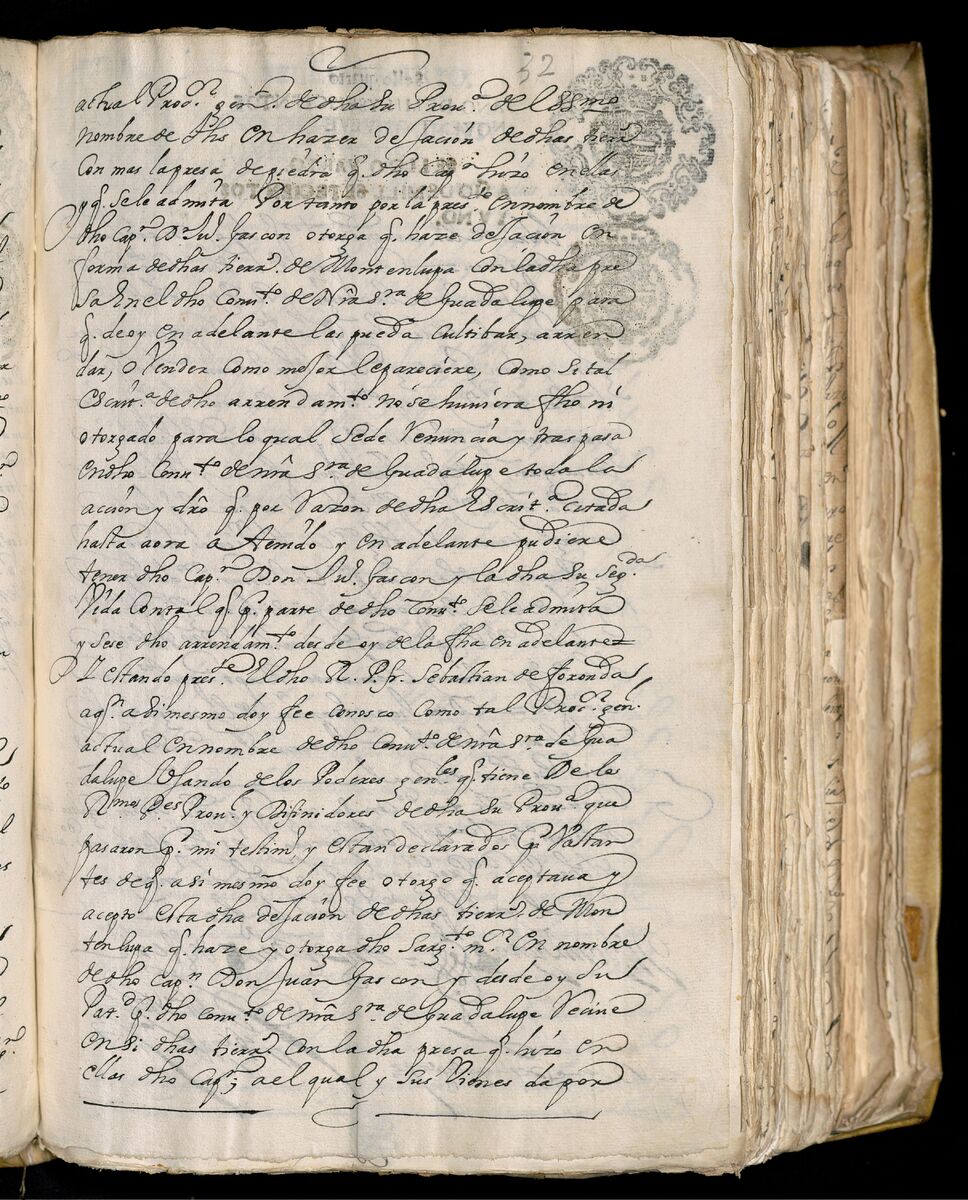 32
actual Proc.r gen.l de dha su Prou.a del SSmo
nombre de Jhs en hazer dejación de dhas tierr.s
Con mas la presa de piedra q. dho Cap.n hizo en ellas
y q. se le admita Por tanto por la press.te en nombre de
dho Cap.n D.n Ju.o Gascon otorga q. haze dejación en
forma de dhas tierr.s de Montenlupa con la dha pre
sa En el dho Conu.to de Nrã S.ra de Guadalupe para
q. de oy en adelante las pueda Cultibar, arren
dar, o Vender Como mejor le pareciere, Como si tal
escrit.a de dho arrendam.to no se huuiera fho ni
otorgado para lo qual Sede Renuncia y traspasa
en dho Conu.to de nrã S.ra de Guadalupe todas las
acción y drõ q. por Razon de dha Escrit.a Citada
hasta aora a tenido y en adelante pudiere
tener dho Cap.n Don Ju.o Gascon y la dha su Seg.da
Vida Con tal q. p. parte de dho Conu.to se le admita
y sese dho arrendam.to desde oy de la fha en adelante
Y estando pres.te El dho R. P. fr. Sebastian de foronda
aq.n asimesmo doy fee conosco Como tal Proc.r gen.l
actual en nombre de dho Conu.to de nrã S.ra de Gua
dalupe Usando de los Poderes gen.les q. tiene De los
R.mos P.es Prou.l y Difinidores de dha su Prou.a que
pasaron p. mi testim.o y estan declarados p. Vastan
tes de q. asimesmo doy fee otorgo q. aceptaua y
acepto esta dha dejación de dhas tierr.s de Mon
tenlupa q. haze y otorga dho Sarg.to m.or en nombre
de dho Cap.n Don Juan Gascon y desde oy Su
Pat.d p. dho Conu.to de nrã S.ra de Guadalupe Reciue
en si dhas tierr.s Con la dha presa q. hizo en
ellas dho Cap.n; a el qual y sus Vienes da por